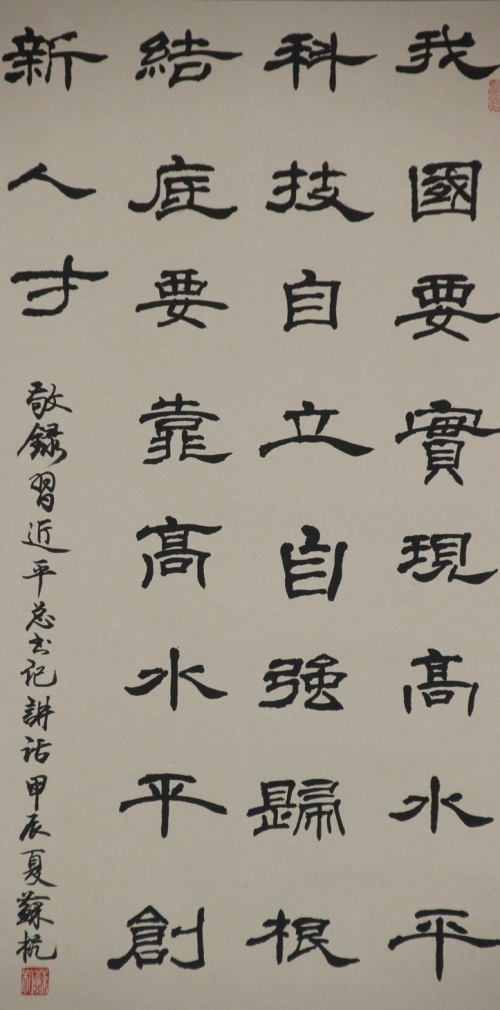 我國要實現高水平
科技自立自強歸根
結底要靠高水平創
新人才
敬録習近平总书记講话甲辰夏蘇杭